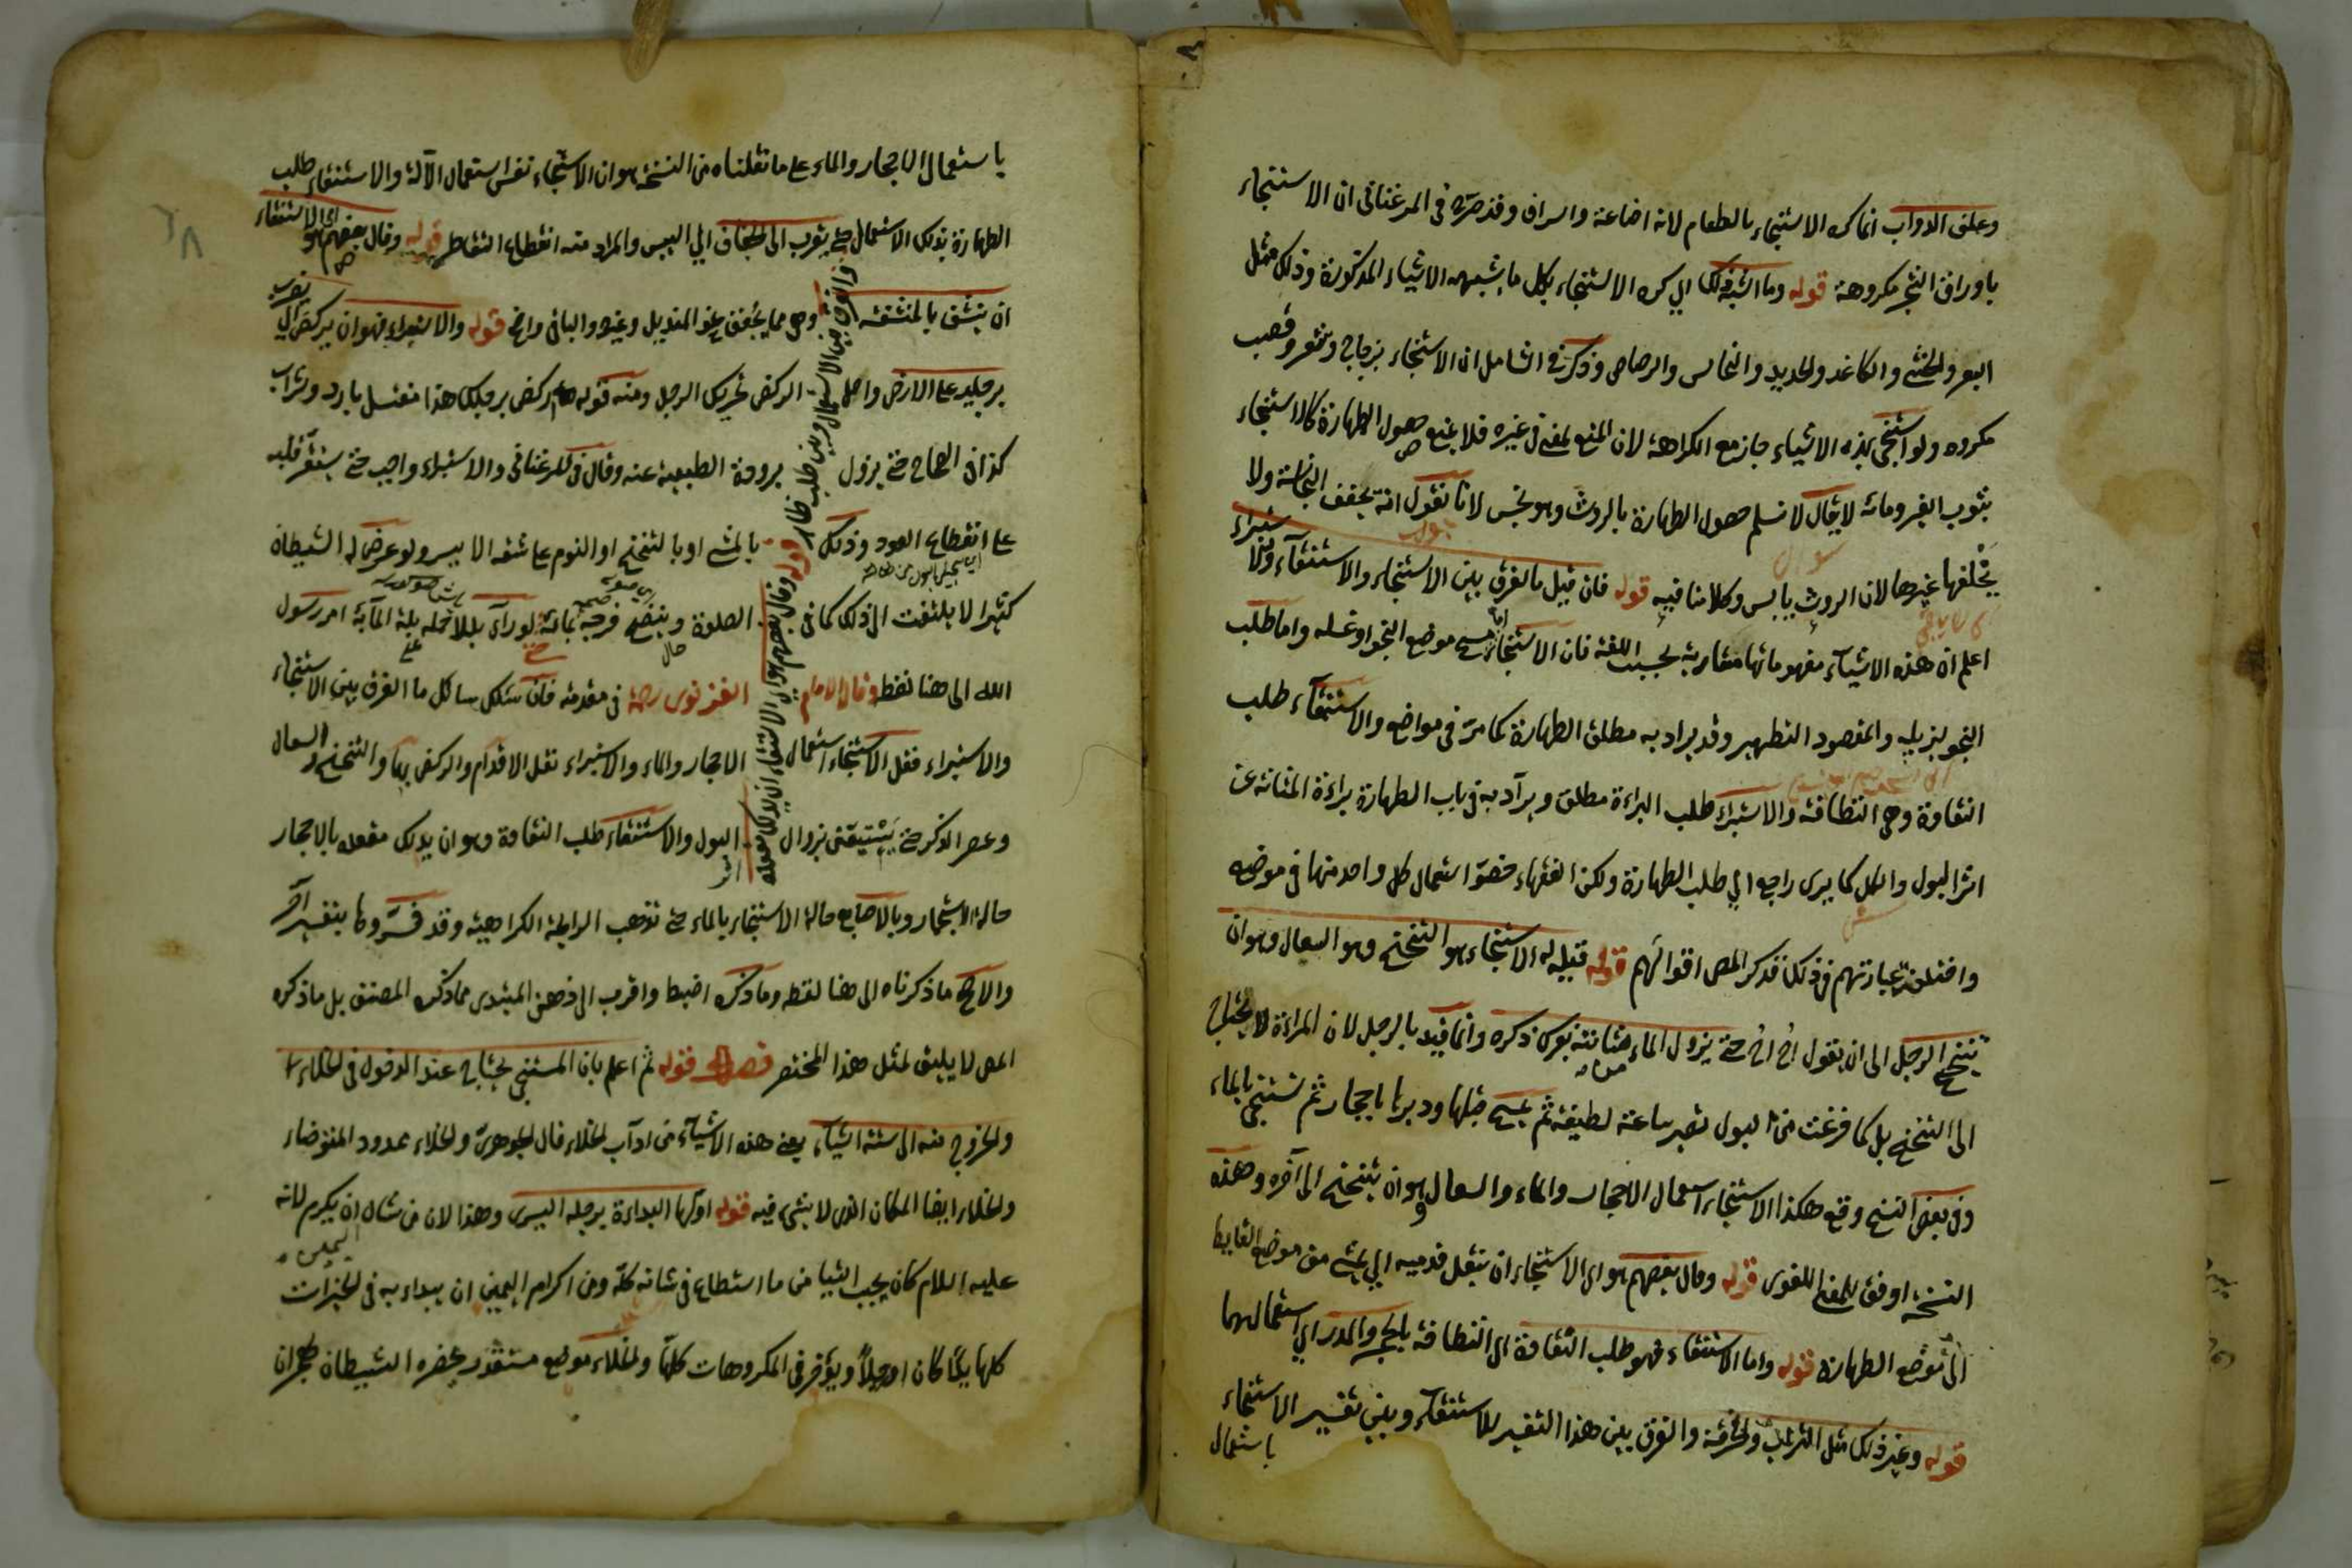 وعلف الدواب انما كره الاستنجاء بالطعام لانه اضاعة واسراف وقد صرح في المرغناني ان الاستنجاء
باوراق الشجر مكروهة قوله وما اشبه ذلك اي كره الاستنجاء بكل ما يشبهه الاشياء المذكورة وذلك مثل
البعر والخثي والكاغد والحديد والنحاس والرصاص وذكر في الشامل ان الاستنجاء بزجاج وشعر وقصب
مكروه ولو استنجى بهذه الاشياء جاز مع الكراهة لان المنع لمعنى في غيره فلا يمنع حصول الطهارة كالاستنجاء
بثوب الغير ومائه لا يقال لا نسلم حصول الطهارة بالروث وهو نجس لانا نقول انه يجفف النجاسة ولا
يخلفها غيرها لان الروث يابس وكلامنا فيه قوله فان قيل ما الفرق بين الاستنجاء والاستنقاء والاستبراء
اعلم ان هذه الاشياء مفهوماتها متقاربة بحسب اللغة فان الاستنجاء مسح موضع النجو او غسله واما طلب
النجو ليزيله والمقصود التطهير وقد يراد به مطلق الطهارة كما مر في مواضع والاستنقاء طلب
النقاوة وهي النظافة والاستبراء طلب البراءة مطلق ويراد به في باب الطهارة براءة المثانة عن
اثر البول والكل كما يرى راجع الى طلب الطهارة ولكن الفقهاء خصوا استعمال كل واحد منها في موضع
واختلف عبارتهم في ذلك قد ذكر المص اقوالهم قوله قيل له الاستنجاء هو التنحنح وهو السعال وهو ان
يتنحنح الرجل الى ان يقول اخ اخ حتى ينزول الماء مثانته بعرى ذكره وانما قيد بالرجل لان المراءة لا تحتاج
الى التنحنح بل كما فرغت من البول تصبر ساعة لطيفة ثم تمسح قبلها ودبرها باحجار ثم تستنجي بالماء
وفي بعض النسخ وقع هكذا الاستنجاء استعمال الاحجار والماء والسعال وهو ان يتنحنح الى آخره وهذه
النسخة اوفق للمعنى اللغوي قوله وقال بعضهم هو اي الاستنجاء ان ينقل قدميه اي يمشي من موضع الغايط
الى موضع الطهارة قوله واما الاستنقاء فهو طلب النقاوة اي النظافة بالحجر والمدر اي استعمالهما
قوله وغير ذلك مثل التراب والخرقة والفرق بين هذا التفسير للاستنقاء وبين تفسير الاستنجاء
باستعمال
باستعمال الاحجار والماء على ما نقلناه من النسخة هو ان الاستنجاء نفس استعمال الآلة والاستنقاء طلب
الطهارة بذلك الاستعمال حتى يقرب الى الجفاف اي اليبس والمراد منه انقطاع التقاطر قوله وقال بعضهم هو اي الاستنقاء
ان ينشف بالمنشفة وهي مما يجفف نحو المنديل وغيره والباقي واضح قوله والاستبراء فهو ان يركض اي يضرب
برجليه على الارض واصل الركض تحريك الرجل ومنه قوله اركض برجلك هذا مغتسل بارد وشراب
كذا في الصحاح حتى يزول برودة الطبيعية عنه وقال في المرغناني والاستبراء واجب حتى يستقر قلبه
على انقطاع العود وذلك بالمشي او بالتنحنح او النوم على شقه الايسر ولو عرض له الشيطان
كثيرا لا يلتفت الى ذلك كما في الصلوة وينضح فرجه بماء حتى لو رأى بللا حمله على بلة الماء به امر رسول
الله الى هنا لفظه وقال الامام الغزنوي رحمه في مقدمته فان سئلك سائل ما الفرق بين الاستنجاء
والاستبراء فقل الاستنجاء استعمال الاحجار والماء والاستبراء نقل الاقدام والركض بها والتنحنح والسعال
وعصر الذكر حتى يستيقن بزوال اثر البول والاستنقاء طلب النقاوة وهو ان يدلك مقعده بالاحجار
حالة الاستجمار وبالاصابع حالة الاستنجاء بالماء حتى تذهب الرايحة الكراهية وقد فسروها بتفسير آخر
والاصح ما ذكرناه الى هنا لفظه وما ذكره اضبط واقرب الى ذهن المبتدى مما ذكره المصنف بل ما ذكره
المص لا يليق لمثل هذا المختصر فصل قوله ثم اعلم بان المستنجي يحتاج عند الدخول في الخلاء
والخروج منه الى ستة اشياء يعني هذه الاشياء من آداب الخلاء قال الجوهري والخلاء ممدود المتوضاء
والخلاء ايضا المكان الذي لا شيء فيه قوله اولها البداءة برجله اليسرى وهذا لان من شان اليمين ان يكرم لانه
عليه السلام كان يحب التيامن ما استطاع في شانه كله ومن اكرام اليمين ان يبداء به في الخيرات
كلها يدا كان او رجلا ويؤخر في المكروهات كلها والخلاء موضع مستقذر يحضره الشيطان
وقال بعضهم هو اي الاستنقاء ان يدلك مقعده